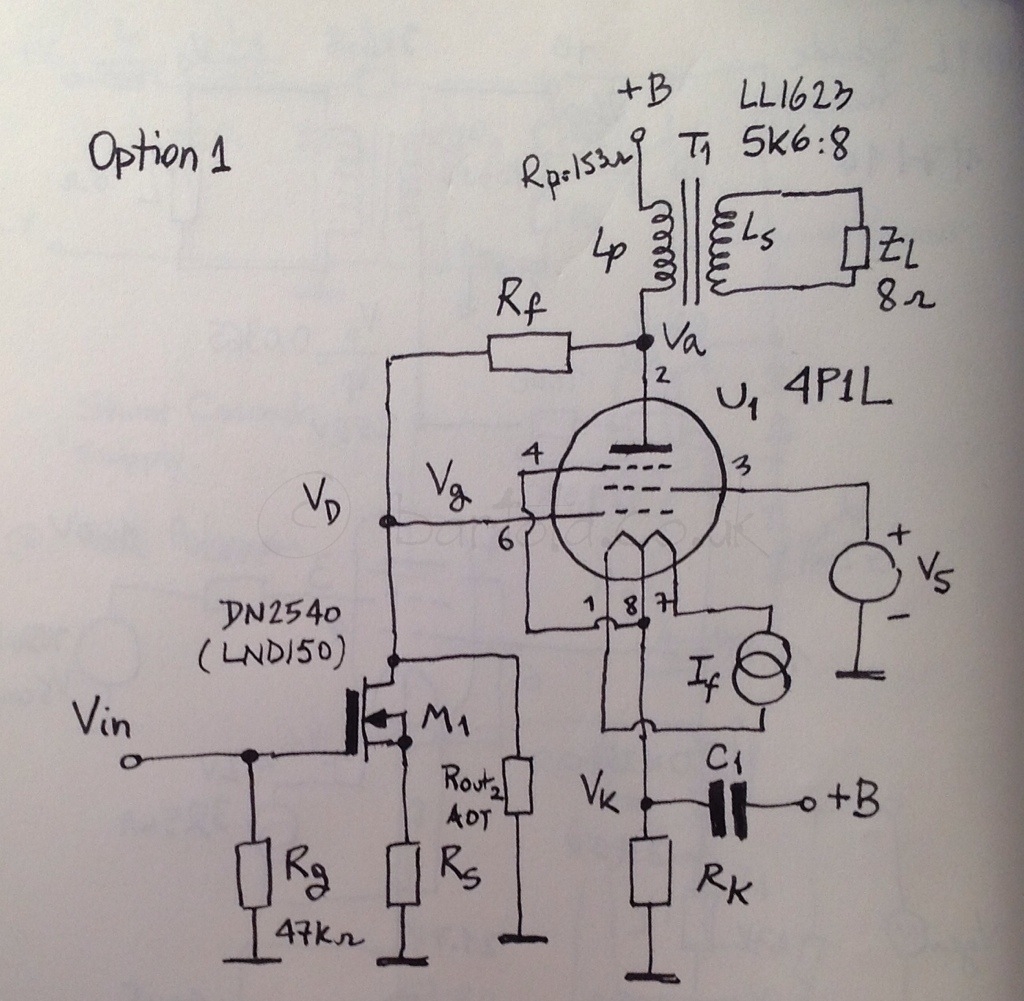 Option 1
+B
LL1623
5K6:8
T1
Rp=153Ω
Lp
Ls
ZL
8Ω
Rf
Va
2
U1 4P1L
4
3
VD
Vg
6
+
Vs
-
1
8
7
DN2540
(LND150)
If
Vin
M1
Rout2
AOT
C1
VK
+B
Rg
47KΩ
Rs
RK
bartola.co.uk